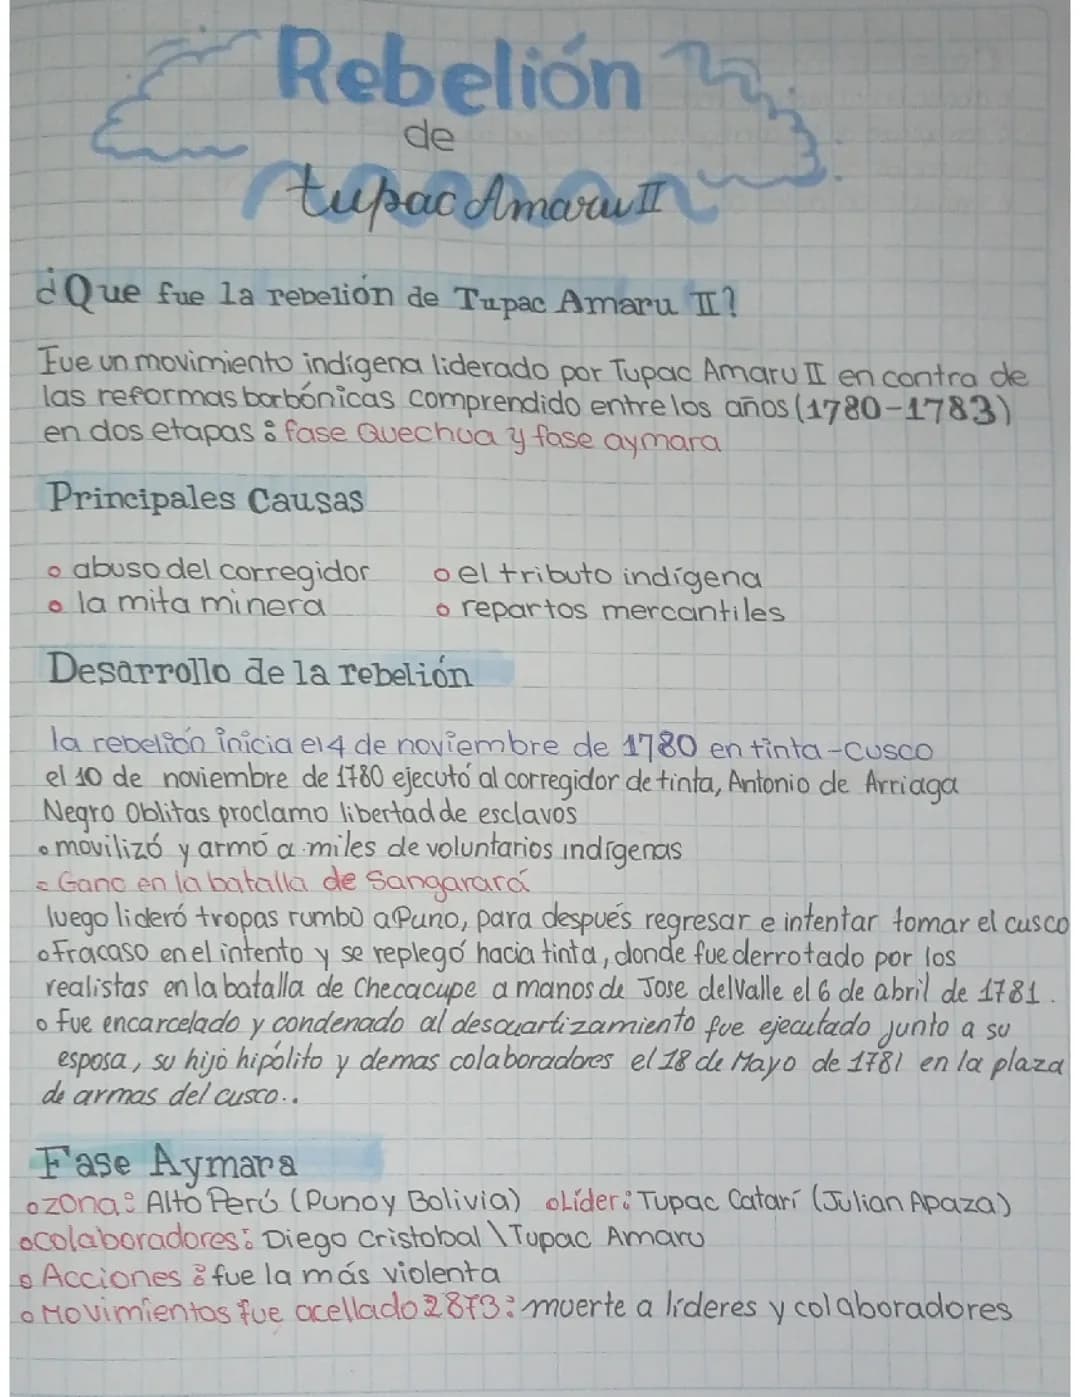 Rebelión
de
tupac Amaru II
¿Que fue la rebelión de Tupac Amaru II?
Fue un movimiento indígena liderado por Tupac Amaru II en contra de
las reformas borbónicas comprendido entre los años (1780-1783)
en dos etapas: fase Quechua y fase aymara
Principales Causas
abuso del corregidor
la mita minera
el tributo indígena
repartos mercantiles
Desarrollo de la rebelión
la rebelión inicia el 4 de noviembre de 1780 en tinta-cusco
el 10 de noviembre de 1780 ejecutó al corregidor de tinta, Antonio de Arriaga
Negro Oblitas proclamo libertad de esclavos
movilizó y armó a miles de voluntarios indígenas
Gano en la batalla de Sangarará
luego lideró tropas rumbo a Puno, para después regresar e intentar tomar el cusco
Fracaso en el intento y se replegó hacia tinta, donde fue derrotado por los
realistas en la batalla de Checacupe a manos de Jose del Valle el 6 de abril de 1781.
Fue encarcelado y condenado al descuartizamiento fue ejecutado junto a su
esposa, su hijo hipólito y demas colaboradores el 18 de Mayo de 1781 en la plaza
de armas del cusco..
Fase Aymara
zona: Alto Perú (Puno y Bolivia) Líder: Tupac Catarí (Julian Apaza)
Colaboradores: Diego Cristobal \ Tupac Amaru
Acciones: fue la más violenta
Movimientos fue acellado 2873: muerte a líderes y colaboradores